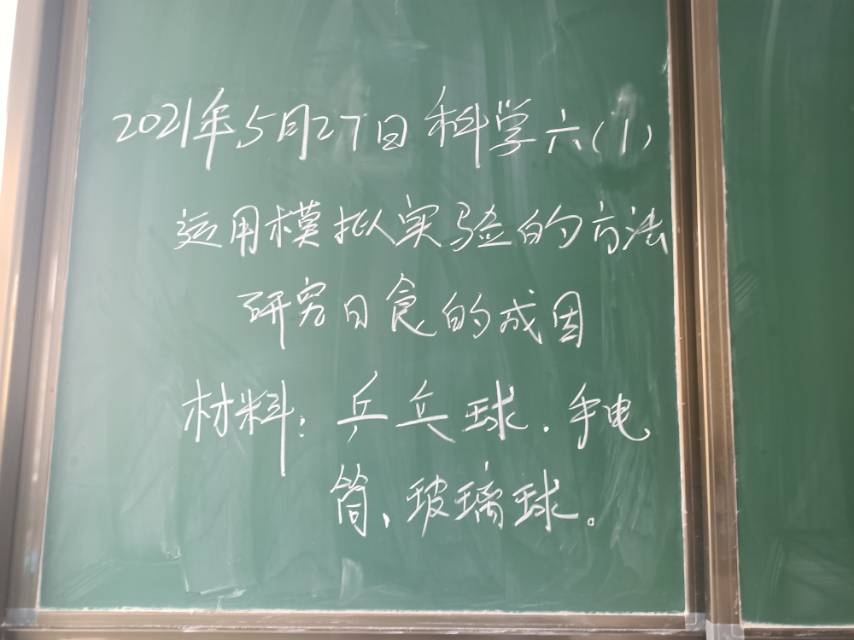 2021年5月27日科学六(1)
运用模拟实验的方法
研究日食的成因
材料:乒乓球.手电
筒、玻璃球。